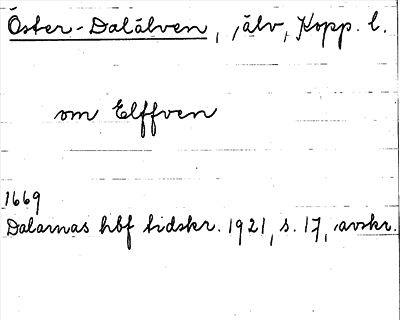 Öster-Dalälven, älv, Kopp. l.
om Elffven
1669
Dalarnas hbf tidskr. 1921, s. 17, avskr.